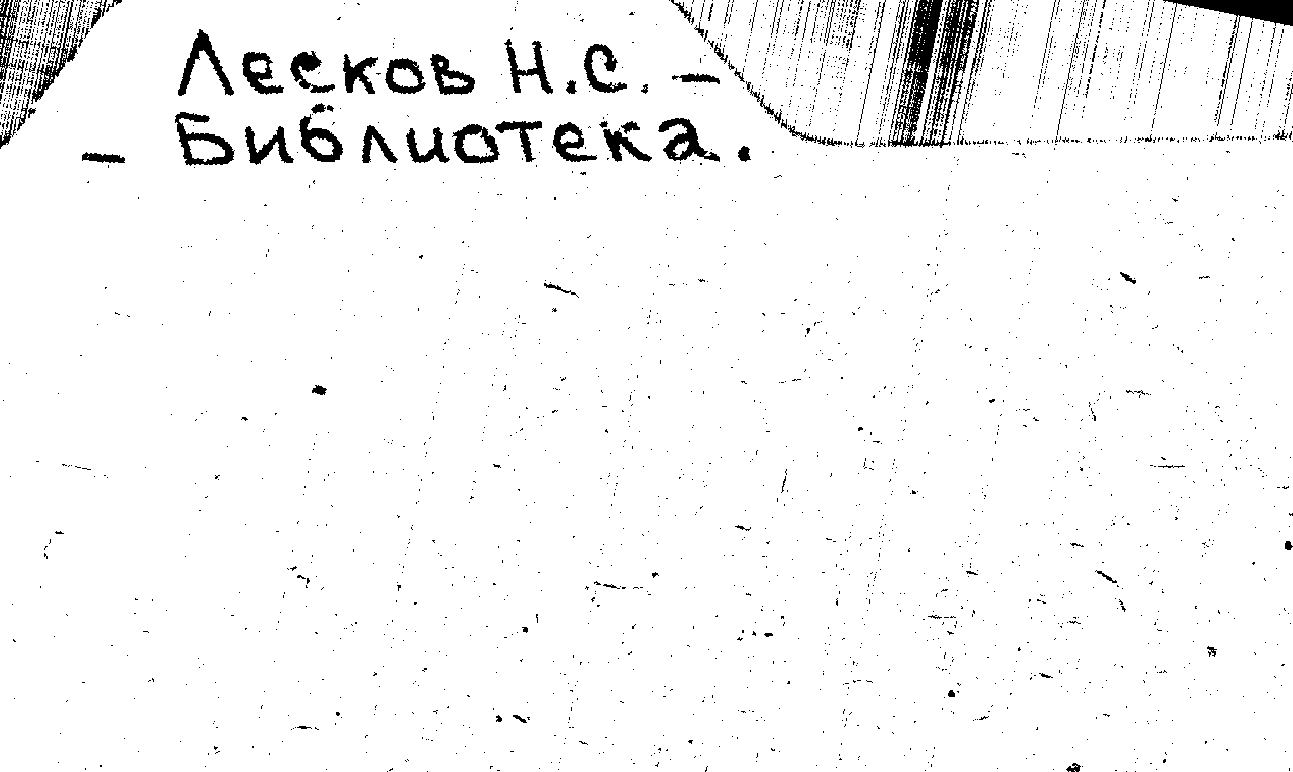 Лесков Н.С. –
– Библиотека.